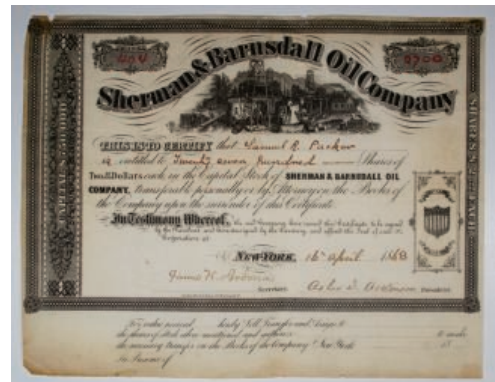 Sherman & Barnsdall Oil Company
2700
THIS IS TO CERTIFY that Samuel R.
is entitled to Twenty seven hundred Shares of
Two Dollars each in the Capital Stock of SHERMAN & BARNSDALL OIL
COMPANY, transferable personally or by Attorney on the Books of
the Company upon the surrender of this Certificate
In Testimony Whereof, the said Company have caused this Certificate to be signed
by the President and countersigned by the Secretary and affixed the Seal of said
Corporation at
NEW-YORK, 16th april 1868
James W.
President
For value received hereby Sell, Transfer and Assign to
the shares of stock within mentioned and authorize
the necessary transfer on the Books of the Company New York
In Presence of
CAPITAL
SHARES
EACH